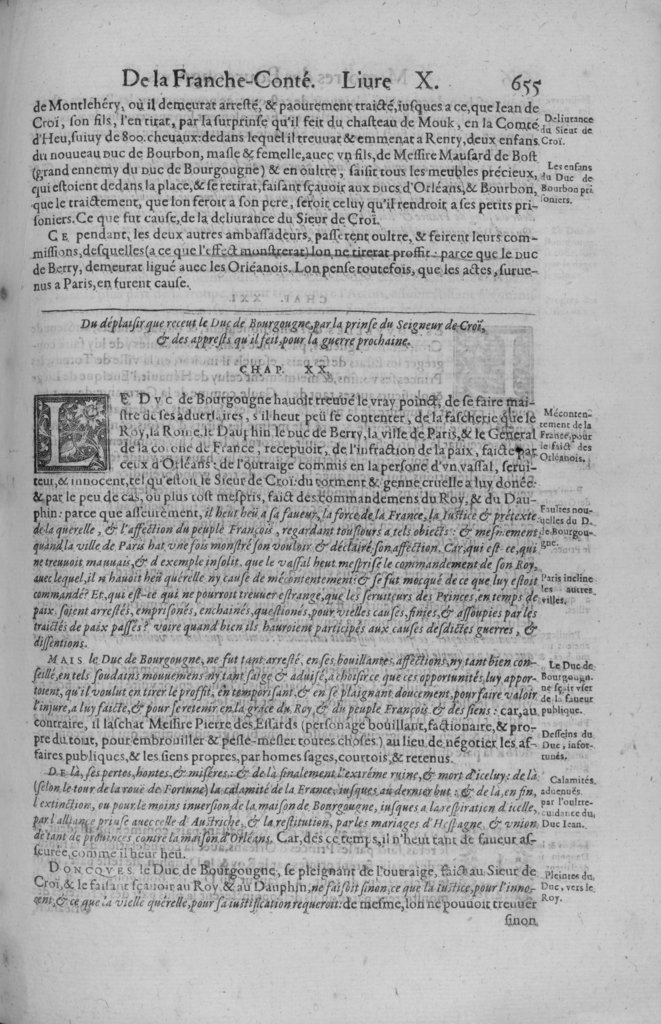 De la Franche-Conté. Liure X. 655
de Montlehéry, où il demeurat arresté, & paourement traicté, iusques a ce, que Iean de
Croï, son fils, l'en tirat, par la surprinse qu'il feit du chasteau de Mouk, en la Comté
d'Heu, suiuy de 800. cheuaux: dedans lequel il treuuat & emmenat a Renty, deux enfans
du nouueau Duc de Bourbon, masle & femelle, auec vn fils, de Messire Mausard de Bost
(grand ennemy du Duc de Bourgougne) & en oultre, saisit tous les meubles précieux,
qui estoient dedans la place, & se retirat, faisant sçauoir aux Ducs d'Orléans, & Bourbon,
que le traictement, que lon feroit a son pere, seroit celuy qu'il rendroit a ses petits pri-
soniers. Ce que fut cause, de la deliurance du Sieur de Croï.
Deliurance
du Sieur de
Croï.
Les enfans
du Duc de
Bourbon pri
soniers.
CE pendant, les deux autres ambassadeurs, passerent oultre, & feirent leurs com-
missions, desquelles (a ce que l'effect monstrerat) lon ne tirerat proffit: parce que le Duc
de Berry, demeurat ligué auec les Orléanois. Lon pense toutefois, que les actes, suruе-
nus a Paris, en furent cause.
Du déplaisir que receut le Duc de Bourgougne, par la prinse du Seigneur de Croï,
& des apprests qu'il feit, pour la guerre prochaine.
CHAP. XX.
LE DVC de Bourgougne hauoit treuué le vray poinct, de se faire mai-
stre de ses aduersaires, s'il heut peu se contenter, de la fascherie que le
Roy, la Roine, le Dauphin, le Duc de Berry, la ville de Paris, & le Général
de la corone de France, recepuoit, de l'infraction de la paix, faicte par
ceux d'Orléans: de l'outraige commis en la persone d'vn vassal, serui-
teur, & innocent, tel qu'estoit le Sieur de Croï: du torment & genne cruelle a luy donée:
& par le peu de cas, ou plus tost mespris, faict des commandemens du Roy, & du Dau-
phin: parce que asseurément, il heut heü a sa faueur, la force de la France, la Iustice & prétexte
de la querelle, & l'affection du peuple François, regardant tousiours a tels obiects: & mesmement
quand la ville de Paris hat vne fois monstré son vouloir & déclairé son affection. Car, qui est-ce, qui
ne treuuoit mauuais, & d'exemple insolit, que le vassal heut mesprisé le commandement de son Roy,
auec lequel, il n'hauoit heü querélle ny cause de mécontentement: & se fut mocqué de ce que luy estoit
commandé? Et, qui est-ce qui ne pourroit treuuer estrange, que les seruiteurs des Princes, en temps de
paix, soient arrestés, emprisonés, enchainés, questionés, pour vielles causes, finies, & assoupies par les
traictés de paix passés? voire quand bien ils hauroient participés aux causes desdictes guerres, &
dissentions.
Mécontен-
tement de la
France, pour
le faict des
Orléanois.
Faultes nou-
uelles du D.
de Bourgou-
gne.
Paris incline
les autres
villes.
MAIS le Duc de Bourgougne, ne fut tant arresté, en ses bouillantes affections, ny tant bien con-
seillé, en tels soudains mouuemens, ny tant saige & aduisé, a choisir ce que ces opportunités, luy appor-
toient, qu'il voulut en tirer le proffit, en temporisant, & en se plaignant doucement, pour faire valoir
l'iniure, a luy faicte, & pour se retenir, en la grace du Roy, & du peuple François, & des siens: car, au
contraire, il laschat Messire Pierre des Essards (personage bouillant, factionaire, & pro-
pre du tout, pour embrouiller & pesle-mesler toutes choses) au lieu de négotier les af-
faires publiques, & les siens propres, par homes sages, courtois, & retenus.
Le Duc de
Bourgougn.
ne sçait vser
de la faueur
publique.
Desseins du
Duc, infor-
tunés.
DE là, ses pertes, hontes, & miseres: & de là finalement l'extréme ruine, & mort d'iceluy: de là
(selon le tour de la rouë de Fortune) la calamité de la France, iusques au dernier but: & de là, en fin,
l'extinction, ou pour le moins inuersion de la maison de Bourgougne, iusques a la respiration d'icelle,
par l'alliance prinse auec celle d'Austriche, & la restitution, par les mariages d'Hespagne, & vnion
de tant de prouinces contre la maison d'Orléans. Car, dés ce temps, il n'heut tant de faueur as-
seurée, comme il heut heü.
Calamités
aduenués
par l'oultre-
cuidance du
Duc Iean.
DONCQVES le Duc de Bourgougne, se pleignant de l'outraige, faict au Sieur de
Croï, & le faisant sçauoir au Roy, & au Dauphin, ne faisoit sinon, ce que la iustice, pour l'inno-
cent, & ce que la vielle quérelle, pour sa iustification requeroit: de mesme, lon ne pouuoit treuuer
Pleintes du
Duc, vers le
Roy.
sinon